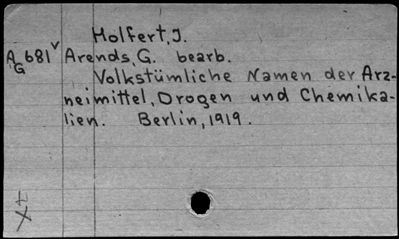 Holfert, J.
A G 681 v Arends, G. bearb.
Volkstümliche Namen der Arz-
neimittel, Drogen und Chemika-
lien. Berlin, 1919.